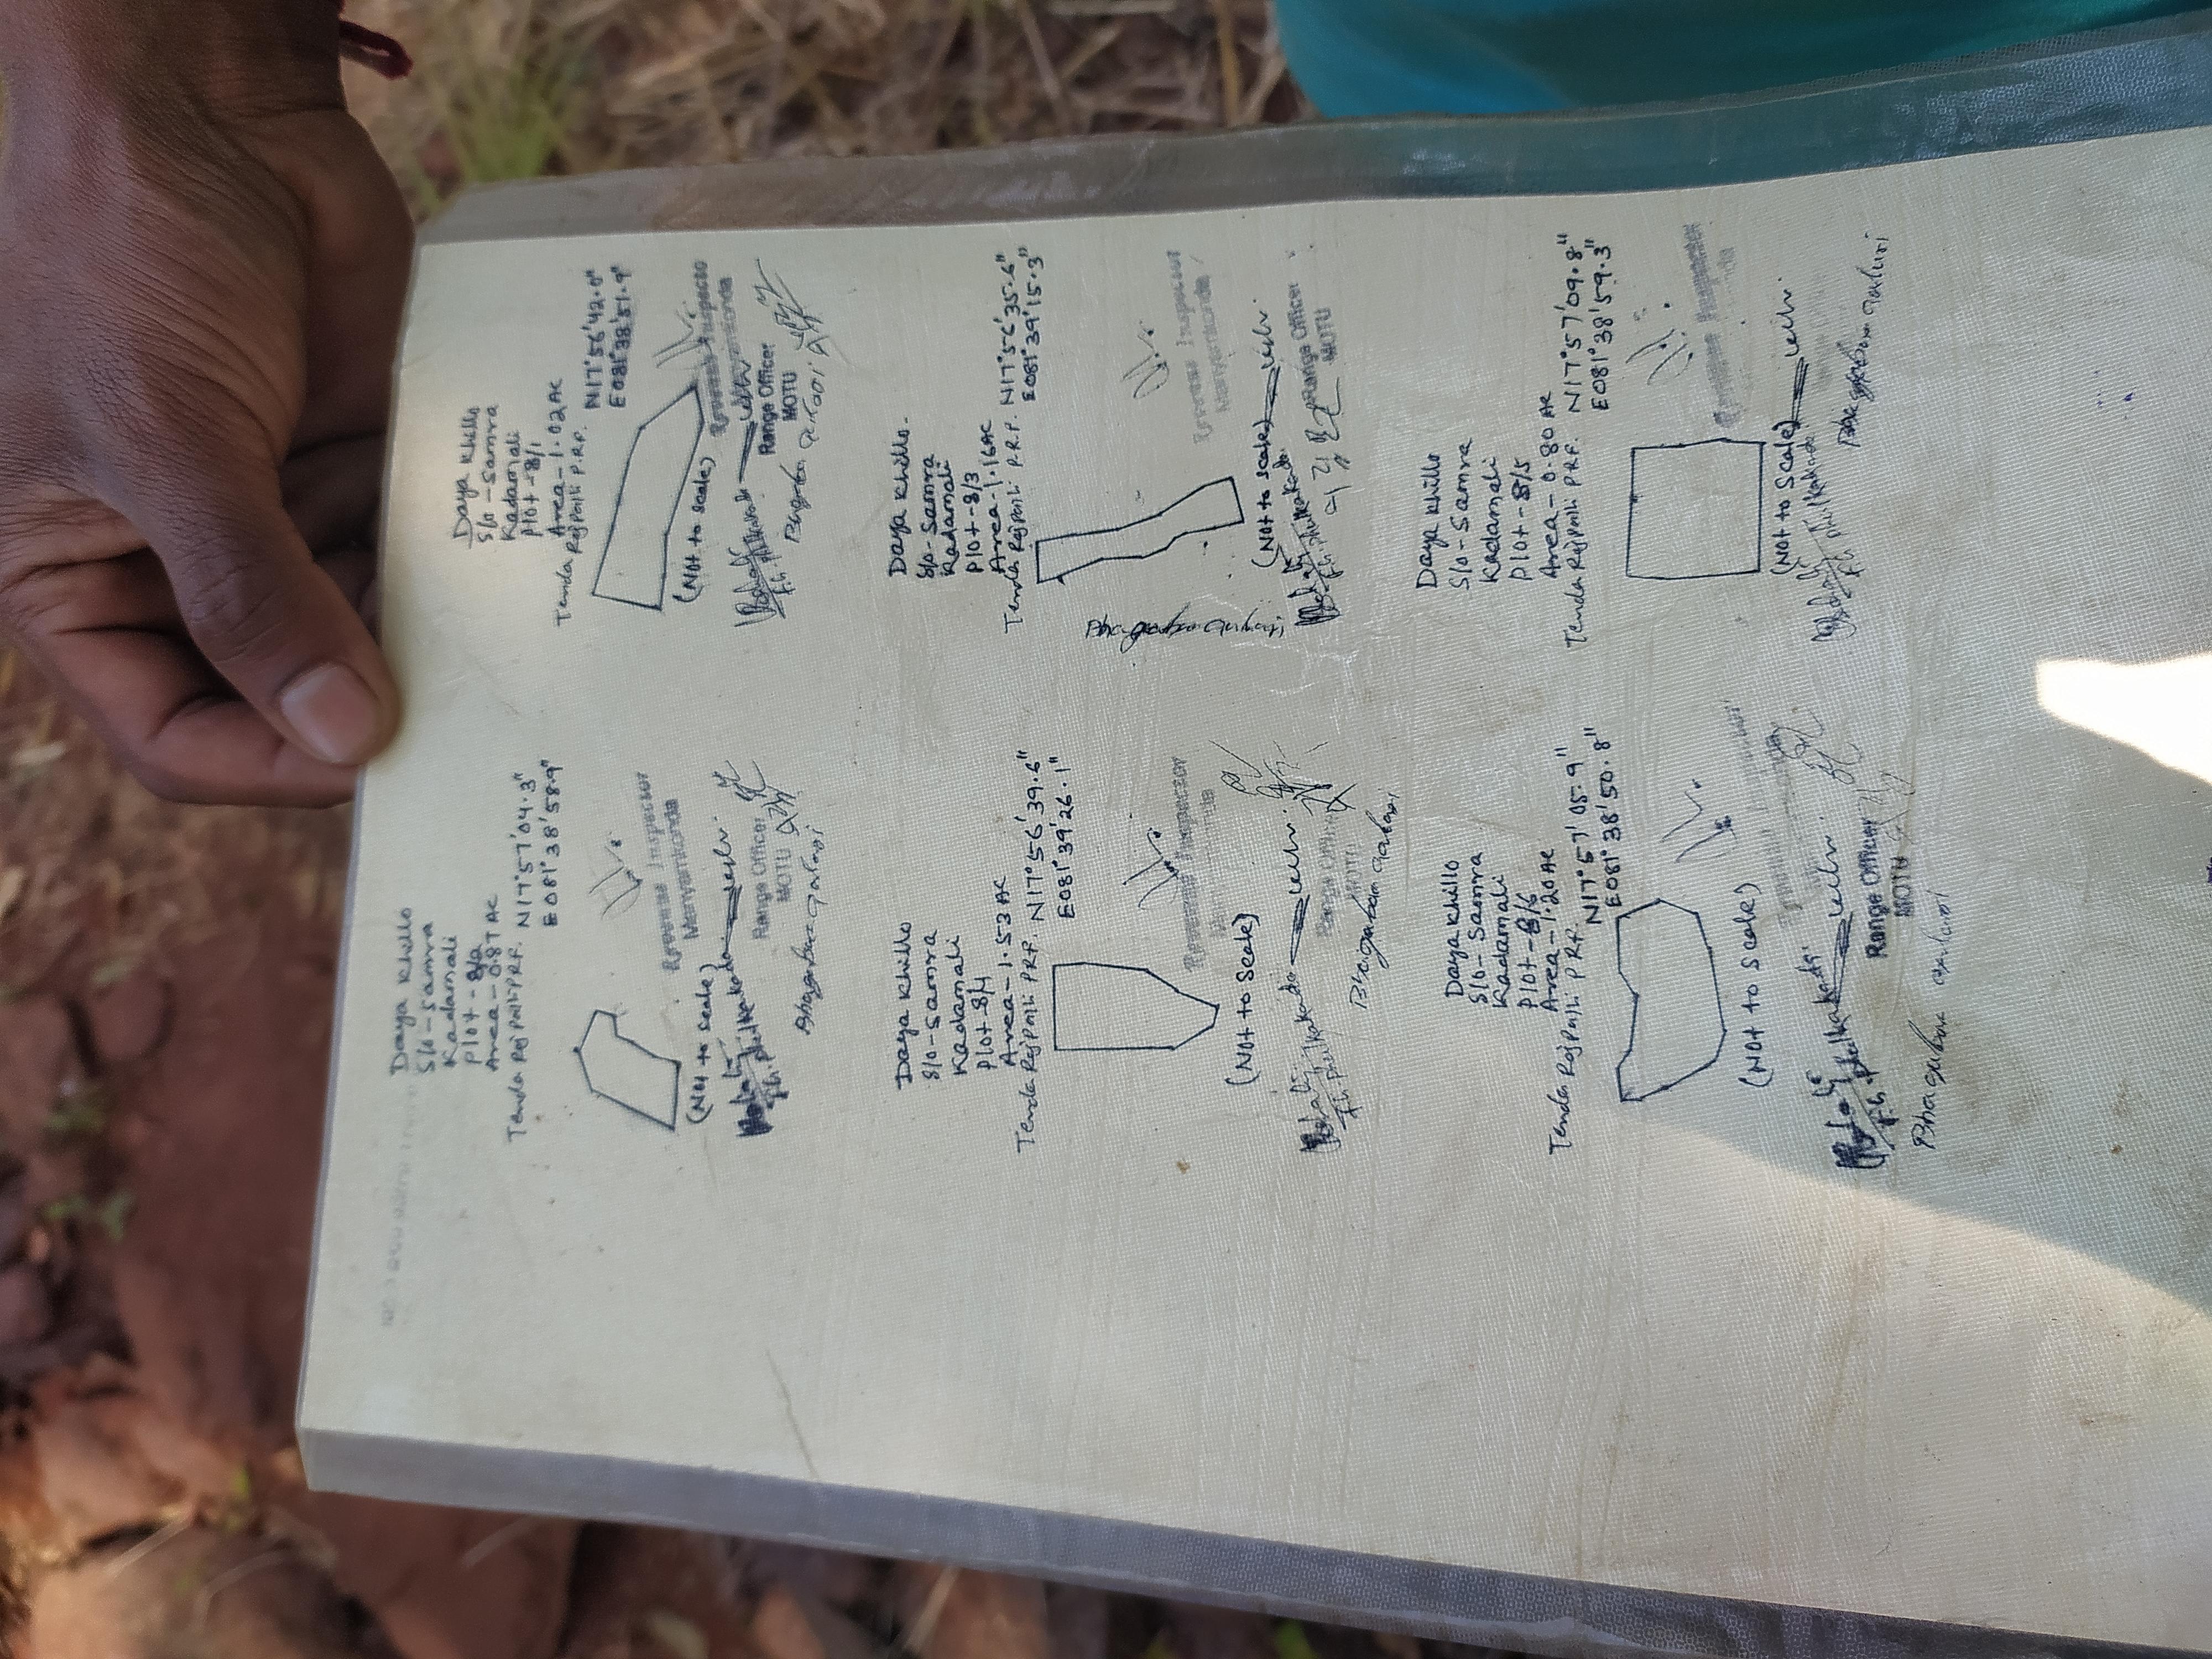 Daya Khillo
S/o - Samra
Kadamali
Plot - 8/2
Area - 0.87 AC
Tenda Rajpalli P.R.F. N17°57'04.3"
E081°38'58.9"
Revenue Inspector
Manyamkonda
(Not to scale)
Range Officer
MOTU
Daya Khillo
S/o - Samra
Kadamali
Plot - 8/1
Area - 1.02 AC
Tenda Rajpalli P.R.F. N17°56'42.0"
E081°38'51.9"
(Not to scale)
Revenue Inspector
Manyamkonda
Range Officer
MOTU
Daya Khillo
S/o - Samra
Kadamali
Plot - 8/4
Area - 1.53 AC
Tenda Rajpalli P.R.F. N17°56'39.6"
E081°39'26.1"
Revenue Inspector
(Not to Scale)
Range Officer
MOTU
Daya Khillo.
S/o - Samra
Kadamali
Plot - 8/3
Area - 1.16 AC
Tenda Rajpalli P.R.F. N17°56'35.6"
E081°39'15.3"
Revenue Inspector
Manyamkonda
(Not to scale)
Range Officer
MOTU
Daya Khillo
S/o - Samra
Kadamali
Plot - 8/6
Area - 1.20 AC
Tenda Rajpalli P.R.F. N17°57'05.9"
E081°38'50.8"
(Not to Scale)
Range Officer
MOTU
Daya Khillo
S/o - Samra
Kadamali
Plot - 8/5
Area - 0.80 AC
Tenda Rajpalli P.R.F. N17°57'09.8"
E081°38'59.3"
Revenue Inspector
(Not to Scale)